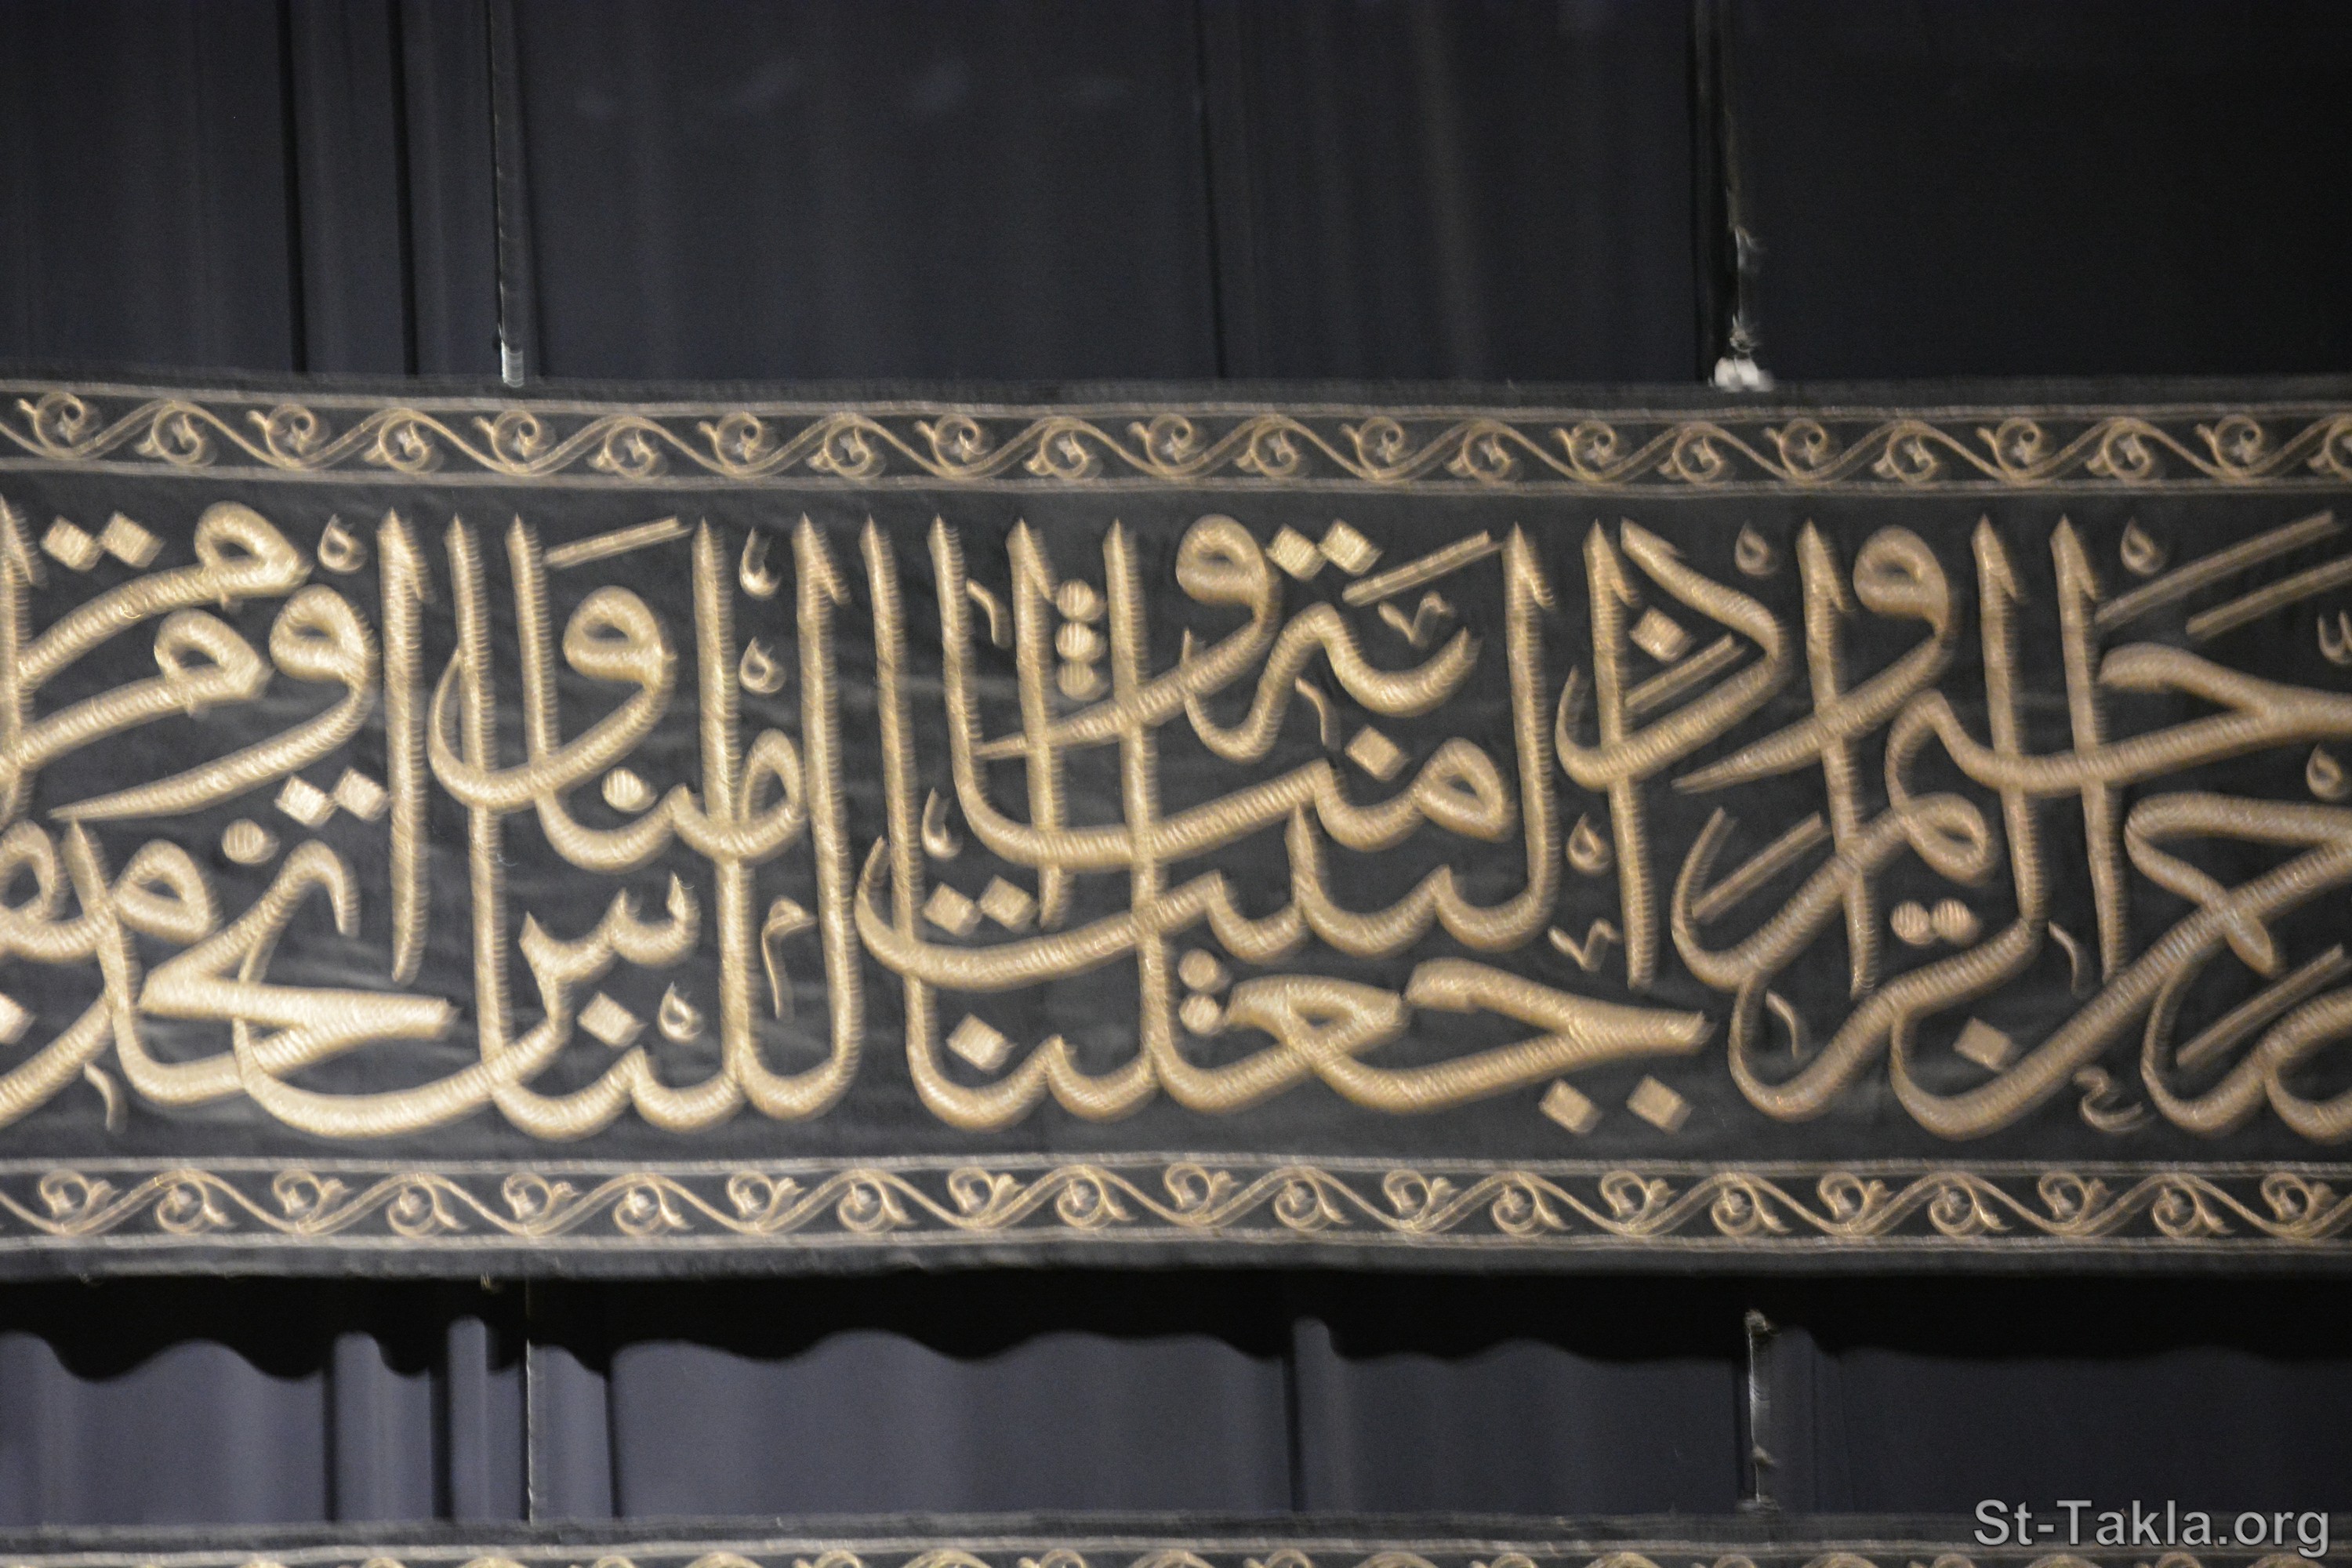 الرحمن الرحيم وإذ جعلنا البيت مثابة للناس وأمنا واتخذوا من مقام
St-Takla.org